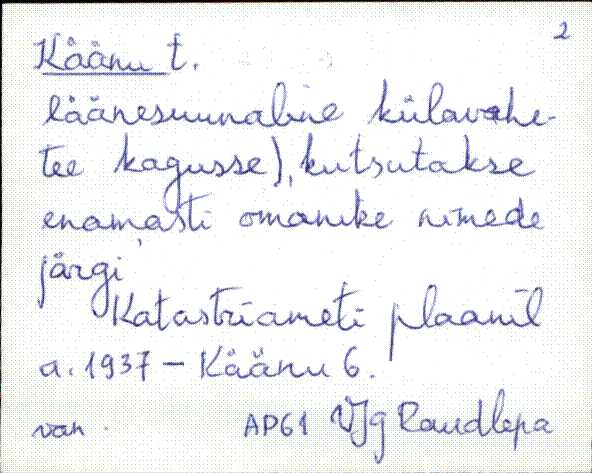 2
Käänu t.
läänesuunaline külavahe-
tee kagusse), kutsutakse
enamasti omanike nimede
järgi
Katastriameti plaanil
a. 1937 – Käänu 6.
van. AP61 VJg Raudlepa